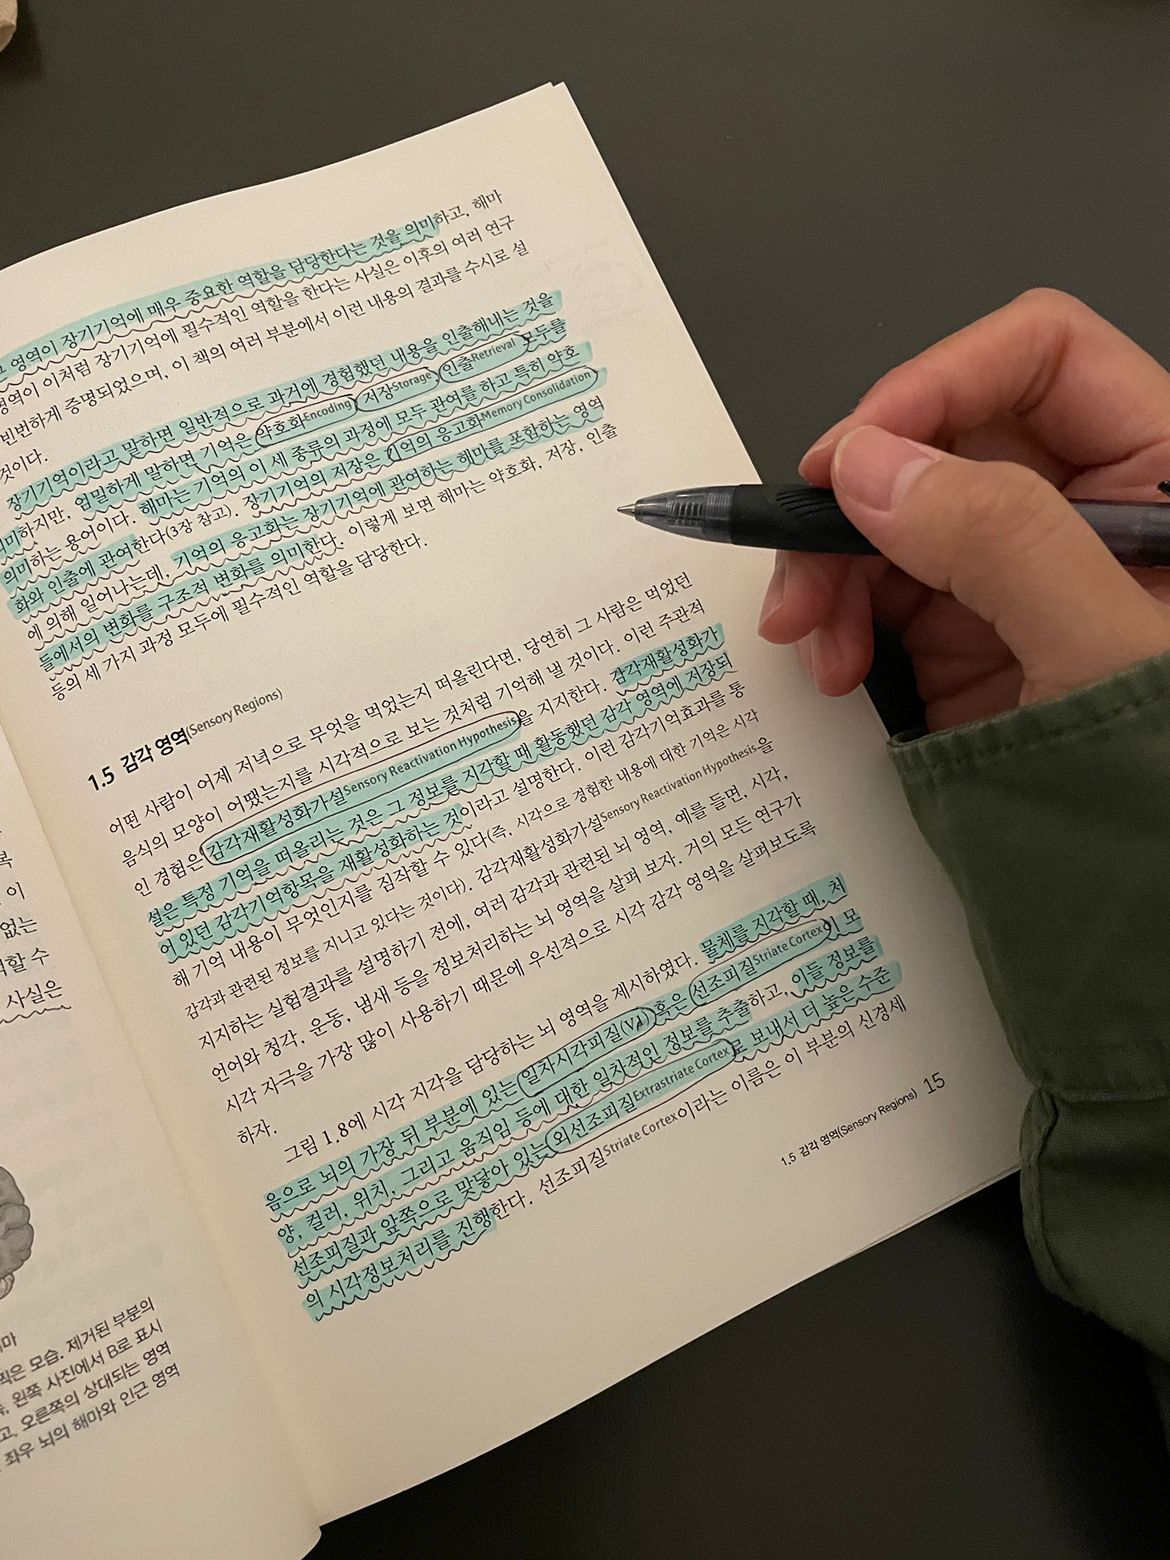 복
이
없는
할 수
사실은
찍은 모습. 제거된 부분의
왼쪽 사진에서 B로 표시
고, 오른쪽의 상대되는 영역
좌우 뇌의 해마와 인근 영역
영역이 장기기억에 매우 중요한 역할을 담당한다는 것을 의미하고, 해마
영역이 이처럼 장기기억에 필수적인 역할을 한다는 사실은 이후의 여러 연구
빈번하게 증명되었으며, 이 책의 여러 부분에서 이런 내용의 결과를 수시로 설
것이다.
장기기억이라고 말하면 일반적으로 과거에 경험했던 내용을 인출해내는 것을
의미하지만, 엄밀하게 말하면 기억은 약호화Encoding, 저장Storage, 인출Retrieval 모두를
의미하는 용어이다. 해마는 기억의 이 세 종류의 과정에 모두 관여를 하고 특히 약호
화와 인출에 관여한다(3장 참고). 장기기억의 저장은 기억의 응고화Memory Consolidation
에 의해 일어나는데, 기억의 응고화는 장기기억에 관여하는 해마를 포함하는 영역
들에서의 변화를 구조적 변화를 의미한다. 이렇게 보면 해마는 약호화, 저장, 인출
등의 세 가지 과정 모두에 필수적인 역할을 담당한다.
1.5 감각 영역(Sensory Regions)
어떤 사람이 어제 저녁으로 무엇을 먹었는지 떠올린다면, 당연히 그 사람은 먹었던
음식의 모양이 어땠는지를 시각적으로 보는 것처럼 기억해 낼 것이다. 이런 주관적
인 경험은 감각재활성화가설Sensory Reactivation Hypothesis을 지지한다. 감각재활성화가
설은 특정 기억을 떠올리는 것은 그 정보를 지각할 때 활동했던 감각 영역에 저장되
어 있던 감각기억항목을 재활성화하는 것이라고 설명한다. 이런 감각기억효과를 통
해 기억 내용이 무엇인지를 짐작할 수 있다(즉, 시각으로 경험한 내용에 대한 기억은 시각
감각과 관련된 정보를 지니고 있다는 것이다). 감각재활성화가설Sensory Reactivation Hypothesis을
지지하는 실험결과를 설명하기 전에, 여러 감각과 관련된 뇌 영역, 예를 들면, 시각,
언어와 청각, 운동, 냄새 등을 정보처리하는 뇌 영역을 살펴 보자. 거의 모든 연구가
시각 자극을 가장 많이 사용하기 때문에 우선적으로 시각 감각 영역을 살펴보도록
하자.
그림 1.8에 시각 지각을 담당하는 뇌 영역을 제시하였다. 물체를 지각할 때, 처
음으로 뇌의 가장 뒤 부분에 있는 일차시각피질(V1) 혹은 선조피질Striate Cortex이 모
양, 컬러, 위치, 그리고 움직임 등에 대한 일차적인 정보를 추출하고, 이들 정보를
선조피질과 앞쪽으로 맞닿아 있는 외선조피질Extrastriate Cortex로 보내서 더 높은 수준
의 시각정보처리를 진행한다. 선조피질Striate Cortex이라는 이름은 이 부분의 신경세
1.5 감각 영역(Sensory Regions) 15